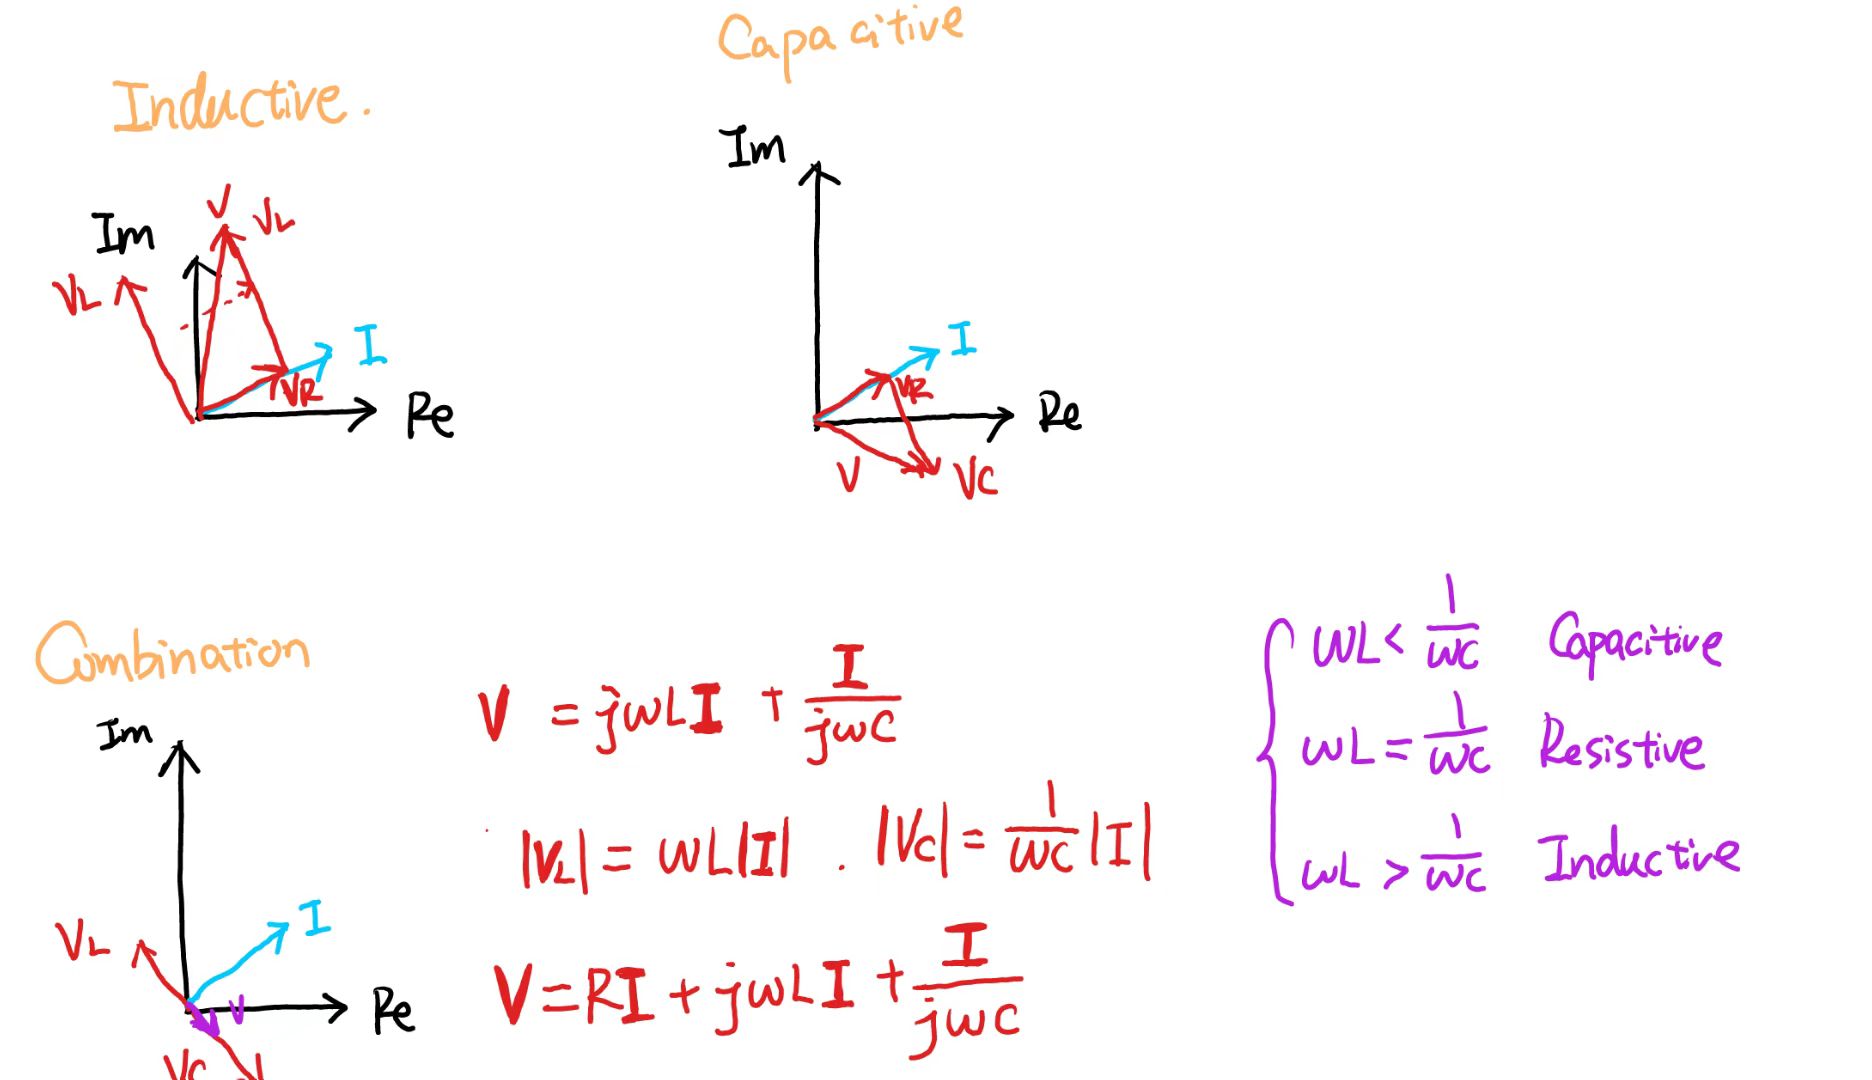 Capacitive
Inductive.
Im
V VL
Im
VL
I
I
VR
VR
Re
Re
V
VC
Combination
Im
V = jωLI + I/jωC
|VL| = ωL|I| . |VC| = 1/ωC |I|
V = RI + jωLI + I/jωC
ωL < 1/ωC Capacitive
ωL = 1/ωC Resistive
ωL > 1/ωC Inductive
I
VL
V
Re
VC